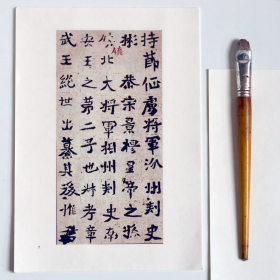 持節征虜將軍汾州刺史
彬恭宗景穆皇帝之孫
北大將軍相州刺史南
安王之第二子也叔考章
武王絕世出纂其後惟君